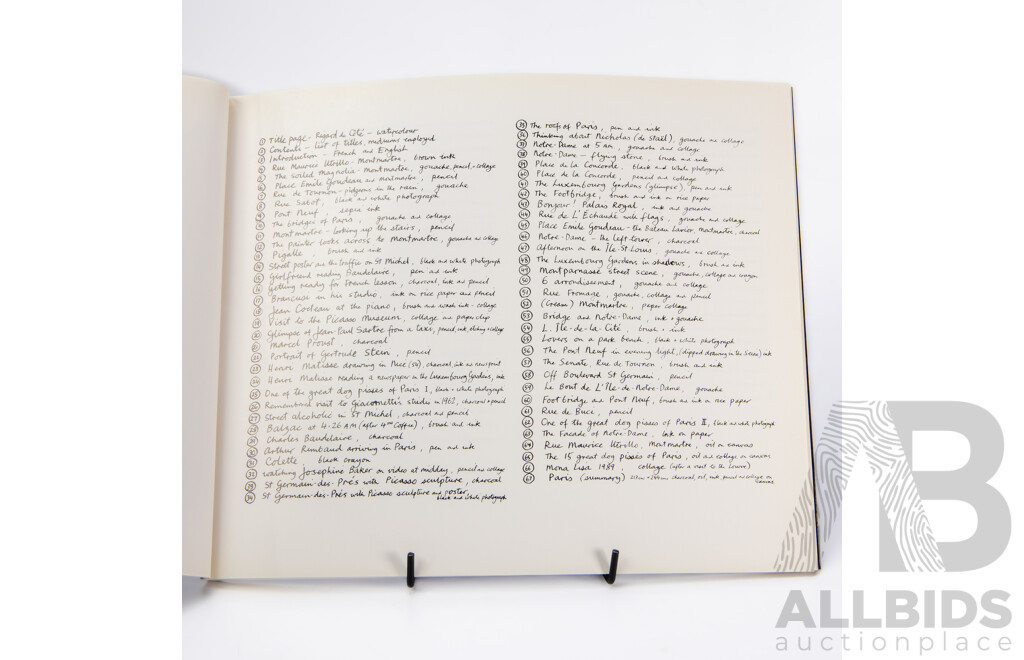 ① Title page - Regard de Côté - watercolour
② Contents - list of titles, mediums employed
③ Introduction - French and English
④ Rue Maurice Utrillo - Montmartre, brown ink
⑤ The soiled Magnolia - Montmartre, gouache, pencil + collage
⑥ Place Emile Goudeau and montmartre, pencil
⑦ Rue de Tournon - pidgeons in the rain, gouache
⑧ Rue Sabot, black and white photograph
⑨ Pont Neuf, sepia ink
⑩ The bridges of Paris, gouache and collage
⑪ Montmartre - looking up the stairs, pencil
⑫ The painter looks across to Montmartre, gouache and collage
⑬ Pigalle, brush and ink
⑭ Street poster and the traffic on St Michel, black and white photograph
⑮ Girlfriend reading Baudelaire, pen and ink
⑯ Getting ready for French lesson, charcoal, ink and pencil
⑰ Brancusi in his studio, ink on rice paper and pencil
⑱ Jean Cocteau at the piano, brush and wash ink - collage
⑲ Visit to the Picasso Museum, collage and paper clip
⑳ Glimpse of Jean Paul Sartre from a taxi, pencil, ink, etching + collage
㉑ Marcel Proust, charcoal
㉒ Portrait of Gertrude Stein, pencil
㉓ Henri Matisse drawing in Nice, charcoal, ink on newsprint
㉔ Henri Matisse reading a newspaper in the Luxembourg Gardens, ink
㉕ One of the great dog pisses of Paris I, black + white photograph
㉖ Remembered visit to Giacometti's studio in 1962, charcoal + pencil
㉗ Street alcoholic in St Michel, charcoal and pencil
㉘ Balzac at 4.26 AM (after 4th Coffee), brush and ink
㉙ Charles Baudelaire, charcoal
㉚ Arthur Rimbaud arriving in Paris, pen and ink
㉛ Colette, black crayon
㉜ Watching Josephine Baker on video at midday, pencil and collage
㉝ St Germain-des-Prés with Picasso sculpture, charcoal
㉞ St Germain-des-Prés with Picasso sculpture and poster,
black and white photograph
㉟ The roofs of Paris, pen and ink
㊱ Thinking about Nicholas (de Staël), gouache and collage
㊲ Notre-Dame at 5 am, gouache and collage
㊳ Notre-Dame - flying stone, brush and ink
㊴ Place de la Concorde, black and white photograph
㊵ Place de la Concorde, pencil and collage
㊶ The Luxembourg Gardens (glimpse), pen and ink
㊷ The Footbridge, brush and ink on rice paper
㊸ Bonjour! Palais Royal, ink and gouache
㊹ Rue de L'Echaude with flags, gouache and collage
㊺ Place Emile Goudeau - the Bateau Lavoir, Montmartre, charcoal
㊻ Notre-Dame - the left tower, charcoal
㊼ Afternoon on the Ile-St Louis, gouache and collage
㊽ The Luxembourg Gardens in shadows, brush and ink
㊾ Montparnasse street scene, gouache, collage and crayon
㊿ 6 arrondissement, gouache and collage
51 Rue Fromage, gouache, collage and pencil
52 (Cream) Montmartre, paper collage
53 Bridge and Notre-Dame, ink + gouache
54 L. Ile-de-la-Cité, brush + ink
55 Lovers on a park bench, black + white photograph
56 The Pont Neuf in evening light, (dipped drawing in the Seine) ink
57 The Senate, Rue de Tournon, brush and ink
58 Off Boulevard St Germain, pencil
59 Le Bout de L'Ile-de-Notre-Dame, gouache
60 Footbridge and Pont Neuf, brush and ink on rice paper
61 Rue de Buci, pencil
62 One of the great dog pisses of Paris II, black and white photograph
63 The Facade of Notre-Dame, ink on paper
64 Rue Maurice Utrillo, Montmartre, oil on canvas
65 The 15 great dog pisses of Paris, oil and collage on canvas
66 Mona Lisa 1989, collage (after a visit to the Louvre)
67 Paris (summary) charcoal, oil, ink, pencil and collage on
canvas
AB
ALLBIDS
auctionplace